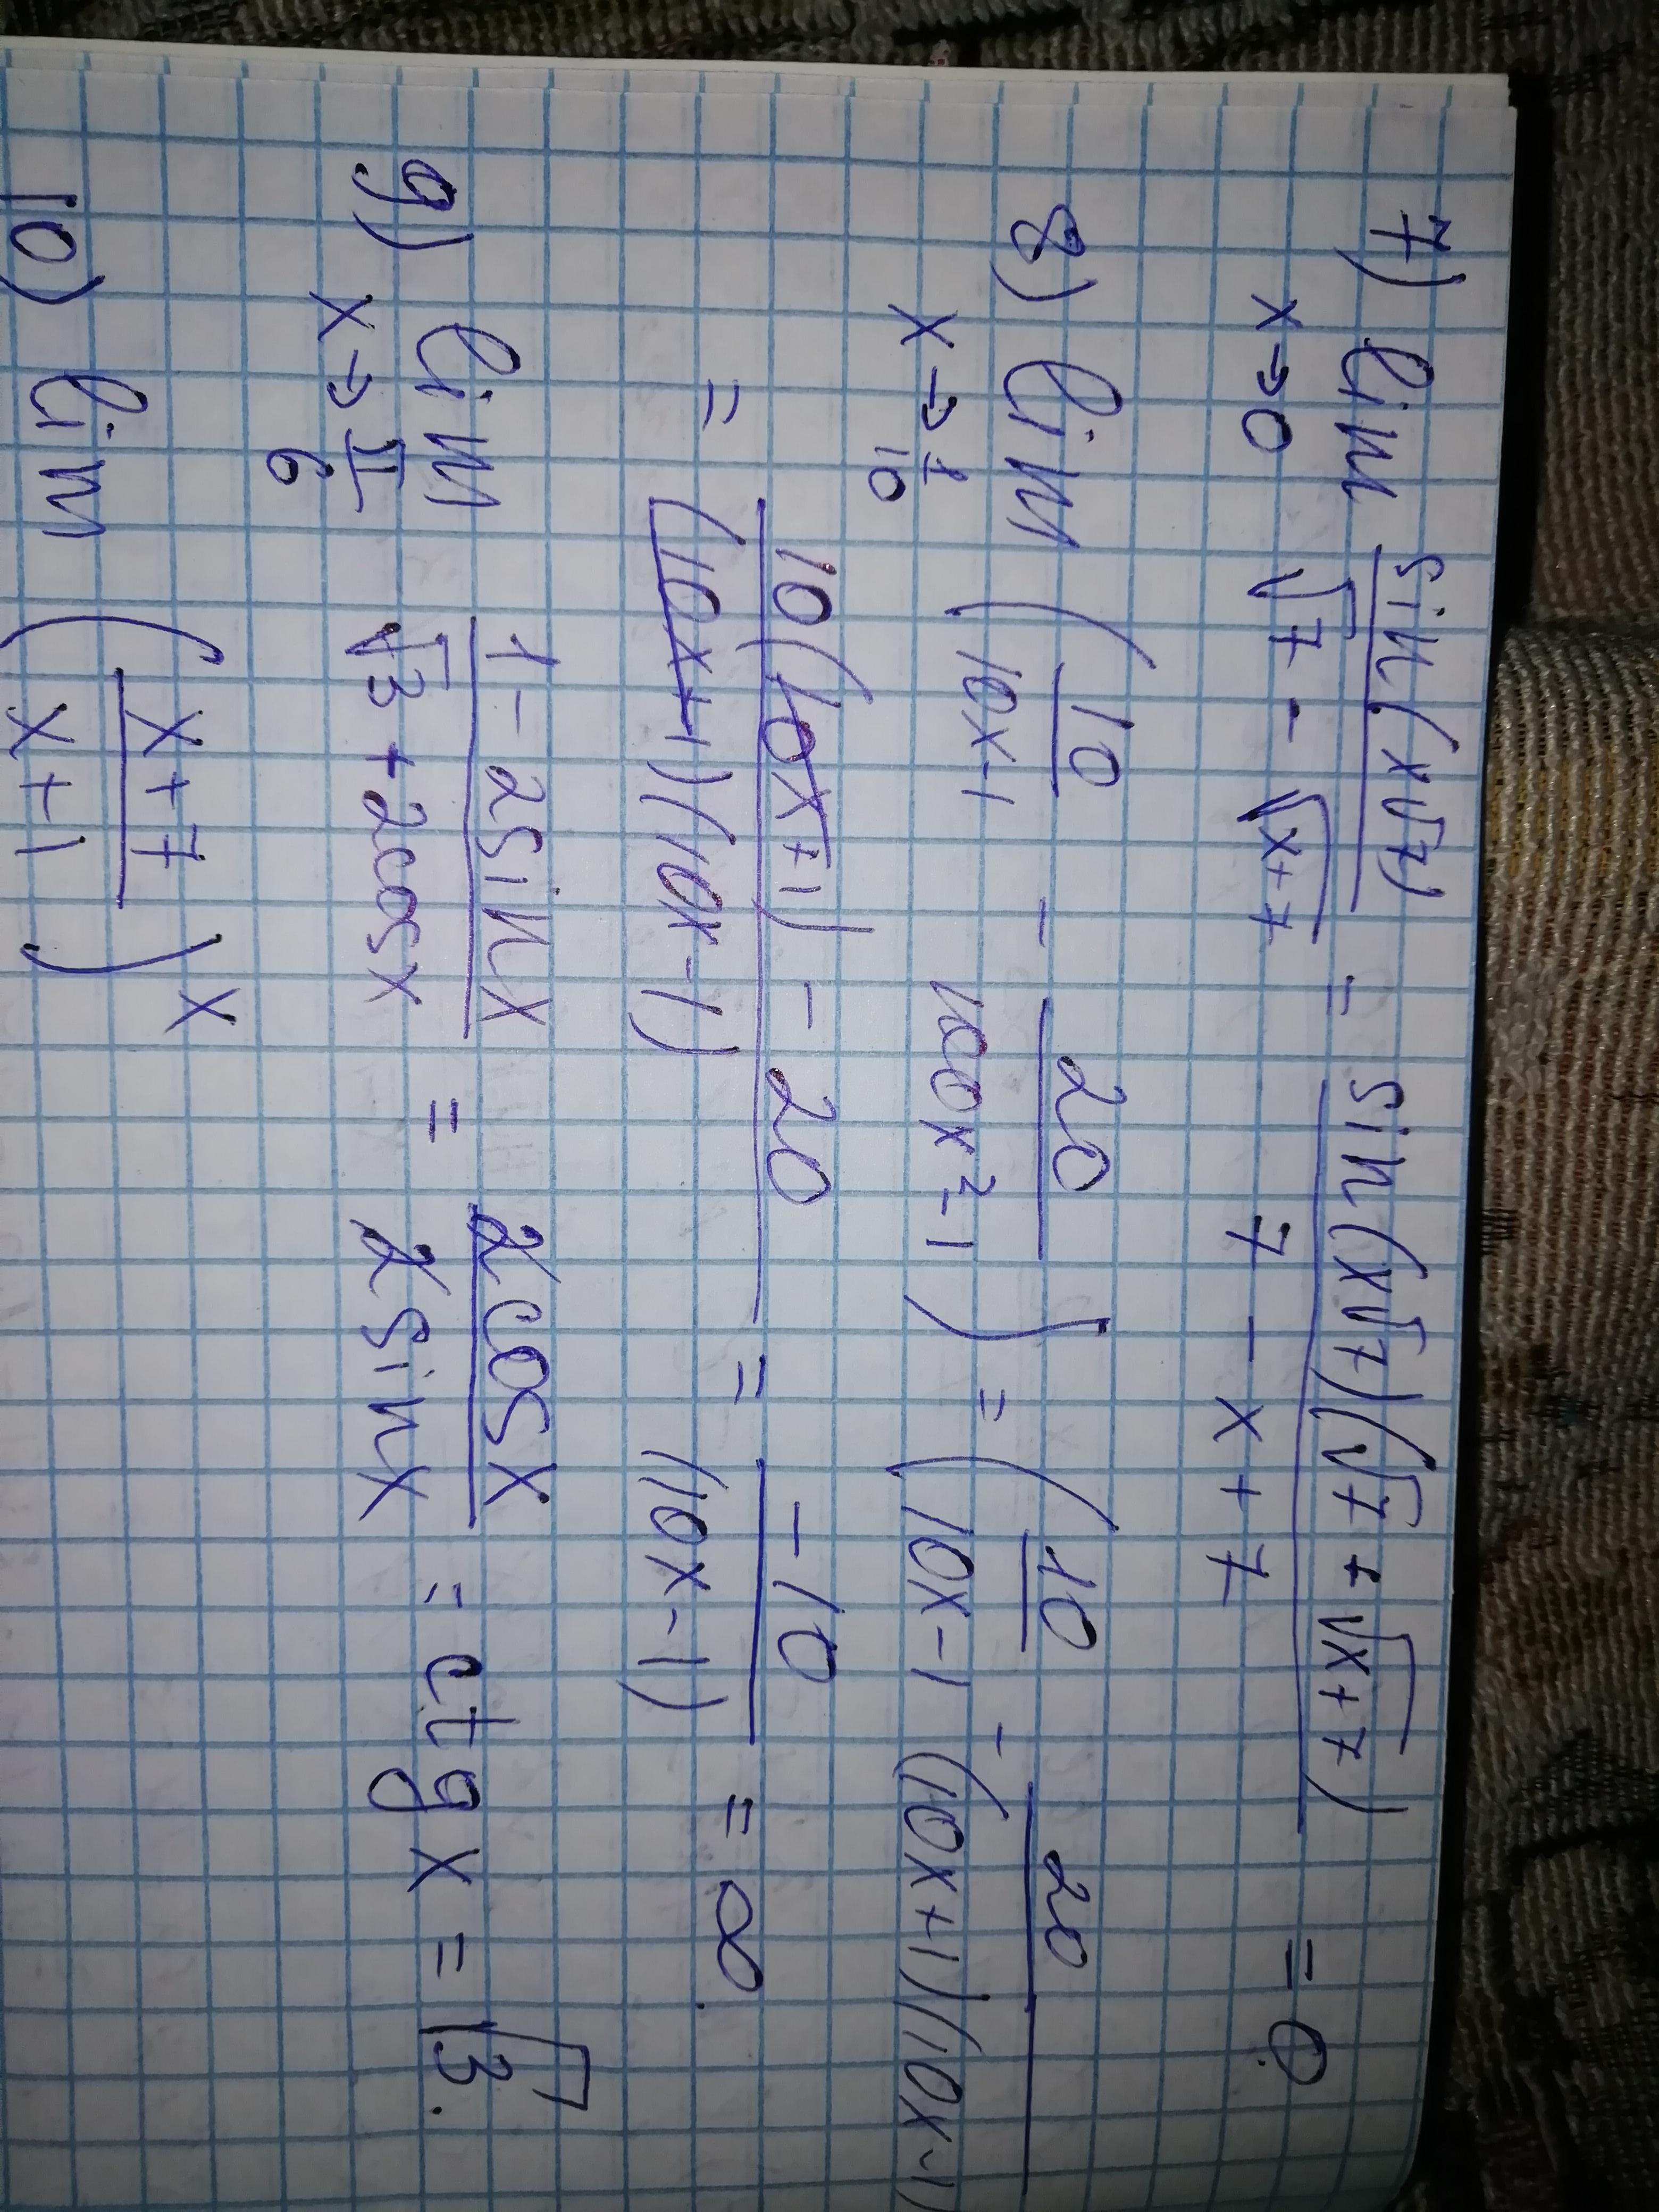 7) lim sin(x√7) / √7 - √x+7 = sin(x√7)(√7 + √x+7) / 7 - x + 7 = 0.
x→0
8) lim (10 / 10x-1 - 20 / 100x²-1) = (10 / 10x-1 - 20 / (10x+1)(10x-1)
x→1/10
= 10(10x+1) - 20 / (10x+1)(10x-1) = -10 / (10x-1) = ∞.
9) lim 1 - 2sinx / √3 + 2cosx = 2cosx / 2sinx = ctgx = √3.
x→π/6
10) lim (x+7 / x+1)ˣ